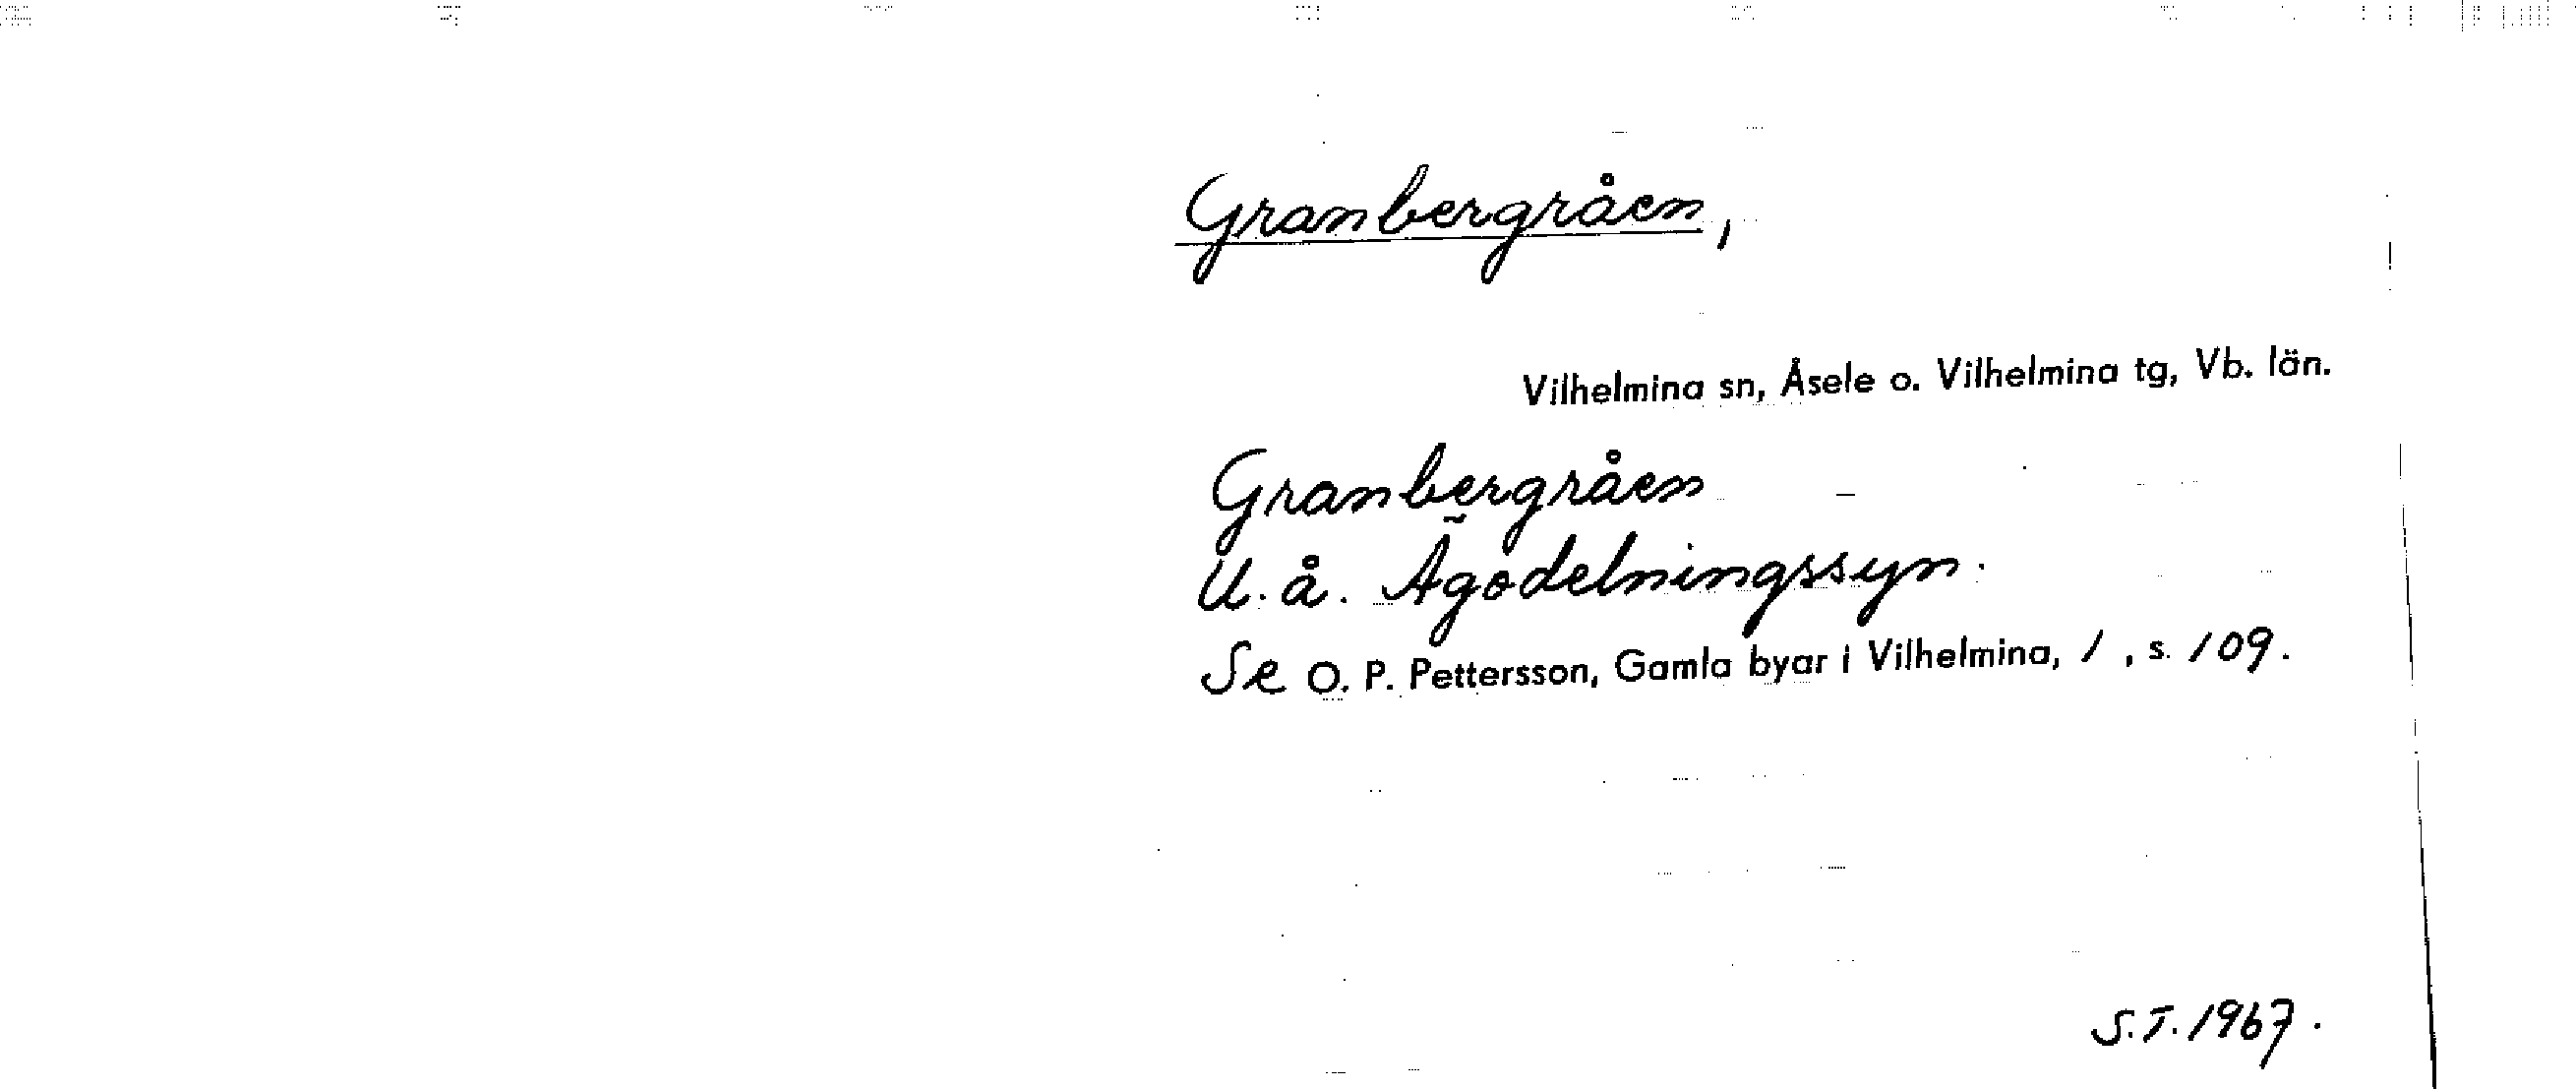 Granbergråen,
Vilhelmina sn, Åsele o. Vilhelmina tg, Vb. län.
Granbergråen
U. å. Ägodelningssyn.
Se O. P. Pettersson, Gamla byar i Vilhelmina, 1, s. 109.
S.T. 1967.